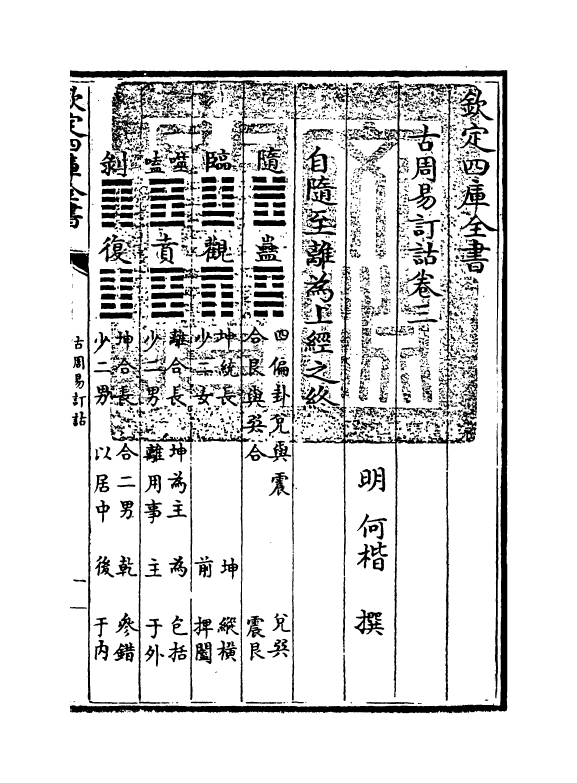 欽定四庫全書
古周易訂詁卷三
明 何楷 撰
自隨至離為上經之終
隨 蠱 四偏卦兌與震 兌巽
合艮與巽合 震艮
臨 觀 坤統長 坤 縱橫
少二女 前 捭闔
噬嗑 賁 離合長 坤為主 為 包括
少二男 離用事 主 于外
剝 復 坤合長 合二男 乾 參錯
少二男 以居中 後 于內
欽定四庫全書
古周易訂詁
一